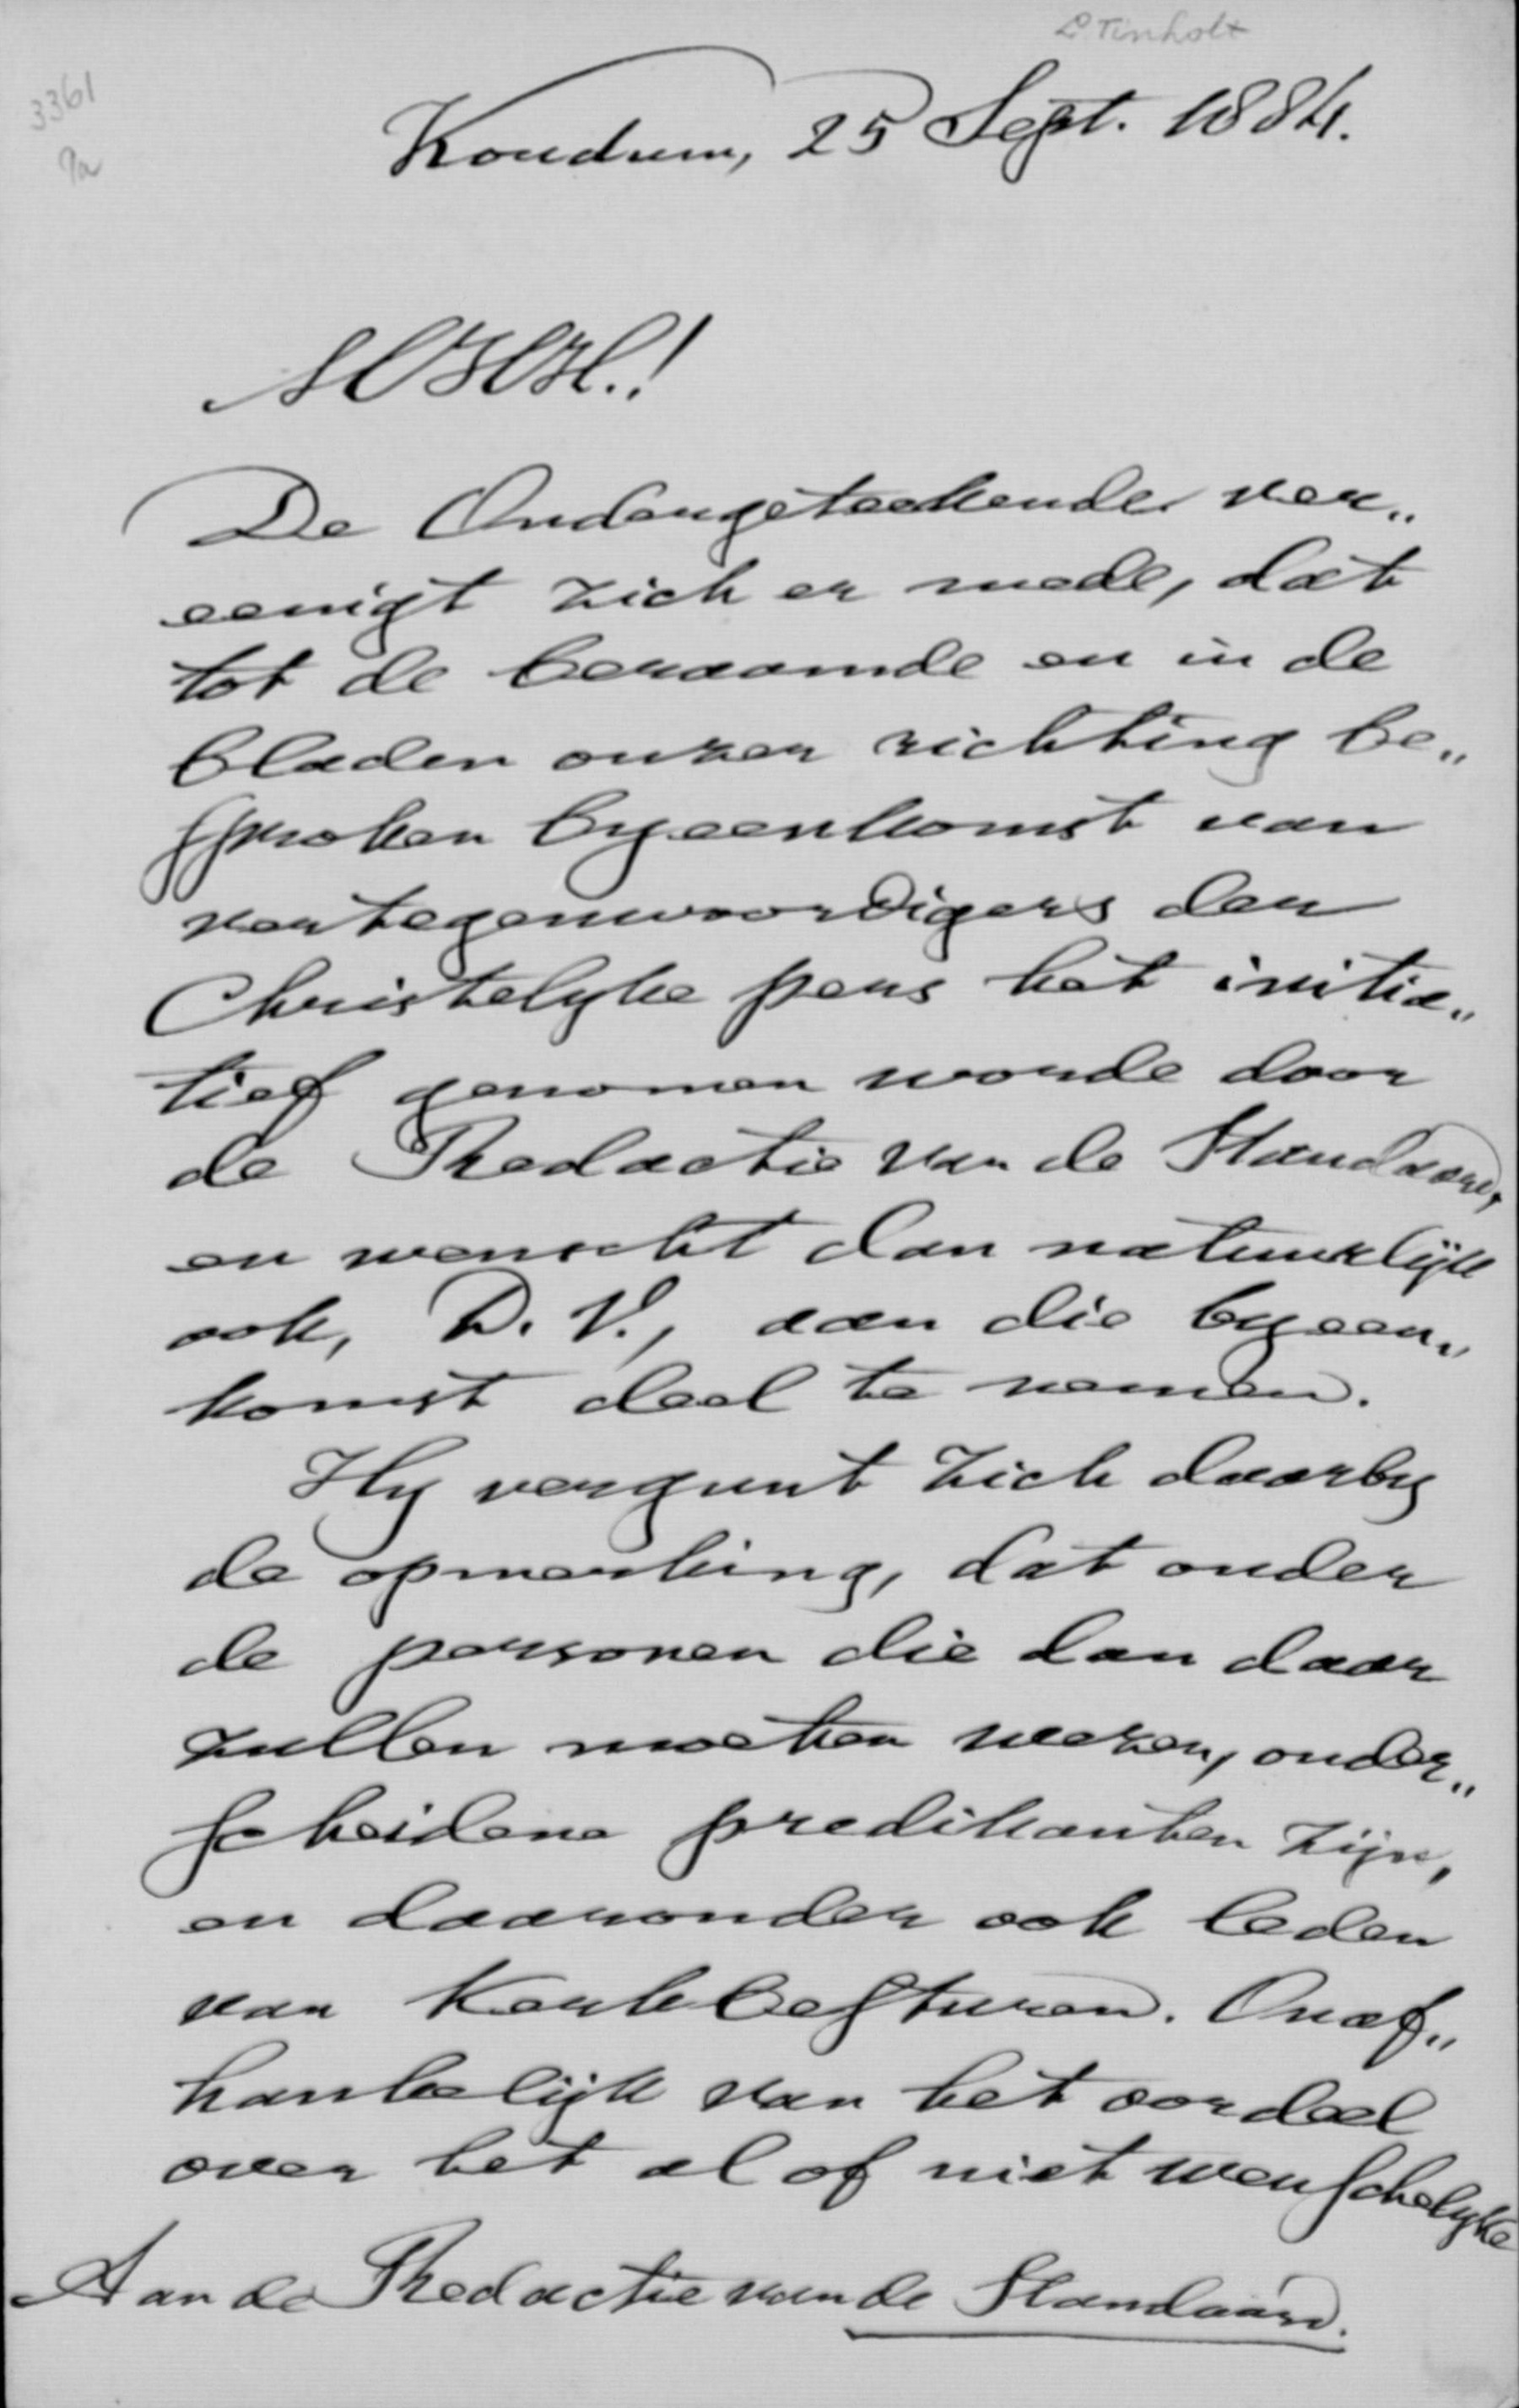 L Tinholt
3361
9a
Koudum, 25 Sept. 1884.
De Ondergeteekende ver„
eenigt zich er mede, dat
tot de beraamde en in de
bladen onzer richting be„
sproken byeenkomst van
vertegenwoordigers der
Christelyke pers het initia„
tief genomen worde door
de Redactie van de Standaard,
en wenscht dan natuurlijk
ook, D. V., aan die byeen„
komst deel te nemen.
Hy vergunt zich daarby
de opmerking, dat onder
de personen die dan daar
zullen moeten wezen, onder„
scheidene predikanten zijn,
en daaronder ook leden
van Kerkbesturen. Onaf„
hankelijk van het oordeel
over het al of niet wenschelyke
Aan de Redactie van de Standaard.